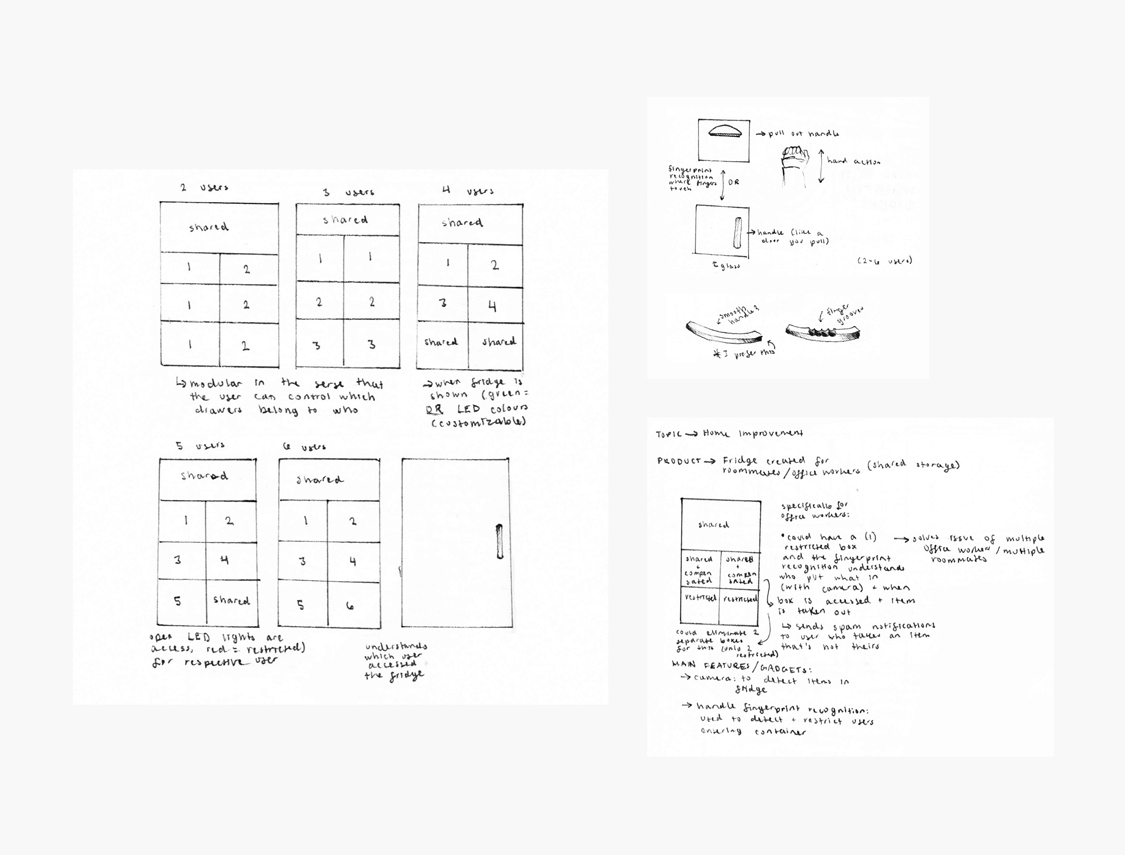 2 users
shared
1 2
1 2
1 2
3 users
shared
1 1
2 2
3 3
4 users
shared
1 2
3 4
shared shared
↳ modular in the sense that
the user can control which
drawers belong to who
→ when fridge is
shown (green =
OR LED colours
(customizable)
5 users
shared
1 2
3 4
5 shared
6 users
shared
1 2
3 4
5 6
open LED lights are
access, red = restricted)
for respective user
understands
which user
accessed
the fridge
→ pull out handle
hand action
fingerprint
recognition
where fingers
touch
OR
→ handle (like a
door you pull)
glass
(2-6 users)
smooth
handle?
finger
grooves
* I prefer this
TOPIC → Home Improvement
PRODUCT → Fridge created for
roommates/office workers (shared storage)
shared
shared
+
compen
sated
shared
+
compen
sated
restricted restricted
could eliminate 2
separate boxes
for this (only 2
restricted)
specifically for
office workers:
• could have a (1)
restricted box
and the fingerprint
recognition understands
who put what in
(with camera) + when
box is accessed + item
is taken out
↳ sends spam notifications
to user who takes an item
that's not theirs
→ solves issue of multiple
office worker/multiple
roommates
MAIN FEATURES/GADGETS:
→ camera: to detect items in
fridge
→ handle fingerprint recognition:
used to detect + restrict users
container